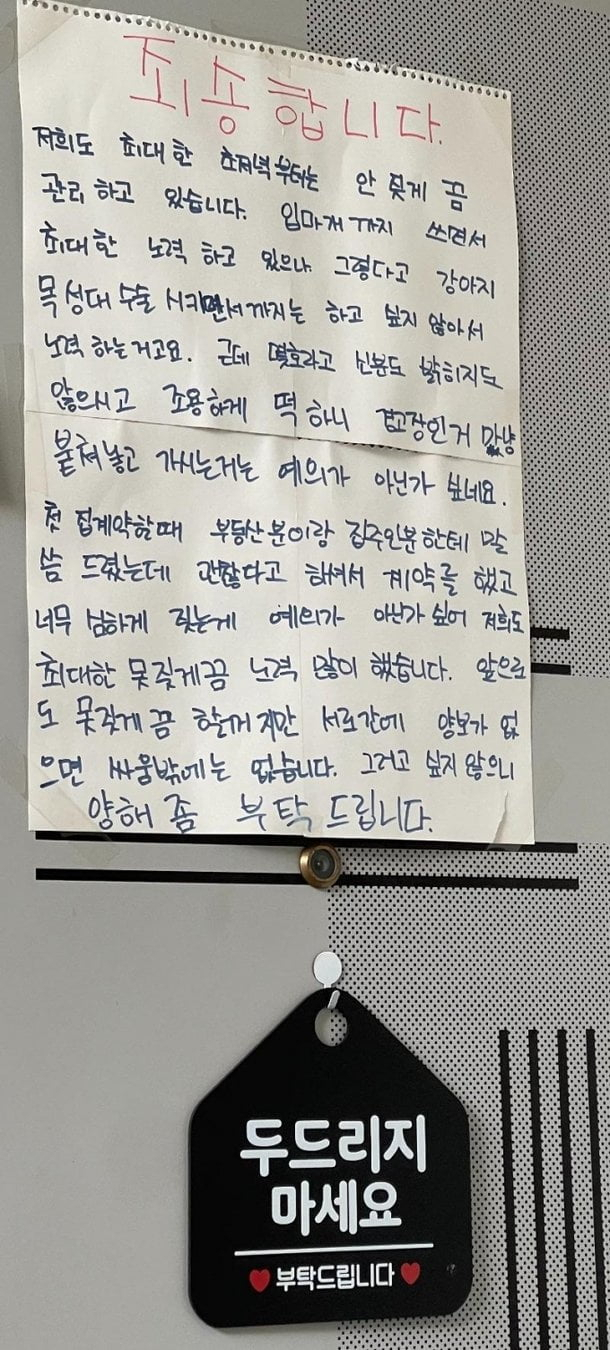 죄송합니다.
저희도 최대한 초저녁부터는 안 짖게 끔
관리 하고 있습니다. 입마개 까지 쓰면서
최대한 노력 하고 있으나 그렇다고 강아지
목 성대 수술 시키면서까지는 하고 싶지 않아서
노력 하는거고요. 근데 몇호라고 신분도 밝히지도
않으시고 조용하게 떡 하니 경고장인거 마냥
붙쳐놓고 가시는거는 예의가 아닌가 싶네요.
첫 집계약할때 부동산분이랑 집주인분한테 말
씀 드렸는데 괜찮다고 하셔서 계약을 했고
너무 심하게 짖는게 예의가 아닌가 싶어 저희도
최대한 못짖게끔 노력 많이 했습니다. 앞으로
도 못짖게 끔 할꺼지만 서로간에 양보가 없
으면 싸움밖에는 없습니다. 그러고 싶지 않으니
양해 좀 부탁 드립니다.
두드리지
마세요
부탁드립니다